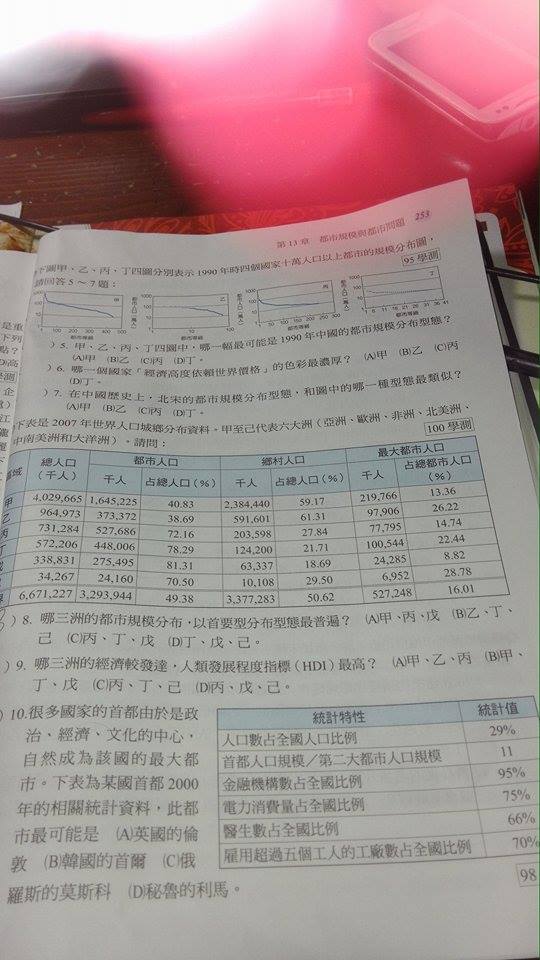 第13章 都市規模與都市問題 253
下圖甲、乙、丙、丁四圖分別表示1990年時四個國家十萬人口以上都市的規模分布圖，
請回答5～7題： 95學測
)5. 甲、乙、丙、丁四圖中，哪一幅最可能是1990年中國的都市規模分布型態？
(A)甲 (B)乙 (C)丙 (D)丁。
)6. 哪一個國家「經濟高度依賴世界價格」的色彩最濃厚？ (A)甲 (B)乙 (C)丙
(D)丁。
)7. 在中國歷史上，北宋的都市規模分布型態，和圖中的哪一種型態最類似？
(A)甲 (B)乙 (C)丙 (D)丁。
下表是2007年世界人口城鄉分布資料。甲至己代表六大洲（亞洲、歐洲、非洲、北美洲、
中南美洲和大洋洲）。請問： 100學測
總人口（千人） 都市人口 鄉村人口 最大都市人口
千人 占總人口（%） 千人 占總人口（%） 千人 占總都市人口（%）
甲 4,029,665 1,645,225 40.83 2,384,440 59.17 219,766 13.36
乙 964,973 373,372 38.69 591,601 61.31 97,906 26.22
丙 731,284 527,686 72.16 203,598 27.84 77,795 14.74
丁 572,206 448,006 78.29 124,200 21.71 100,544 22.44
戊 338,831 275,495 81.31 63,337 18.69 24,285 8.82
34,267 24,160 70.50 10,108 29.50 6,952 28.78
6,671,227 3,293,944 49.38 3,377,283 50.62 527,248 16.01
)8. 哪三洲的都市規模分布，以首要型分布型態最普遍？ (A)甲、丙、戊 (B)乙、丁、
己 (C)丙、丁、戊 (D)丁、戊、己。
)9. 哪三洲的經濟較發達，人類發展程度指標（HDI）最高？ (A)甲、乙、丙 (B)甲、
丁、戊 (C)丙、丁、己 (D)丙、戊、己。
)10.很多國家的首都由於是政
治、經濟、文化的中心，
自然成為該國的最大都
市。下表為某國首都2000
年的相關統計資料，此都
市最可能是 (A)英國的倫
敦 (B)韓國的首爾 (C)俄
羅斯的莫斯科 (D)秘魯的利馬。
統計特性 統計值
人口數占全國人口比例 29%
首都人口規模／第二大都市人口規模 11
金融機構數占全國比例 95%
電力消費量占全國比例 75%
醫生數占全國比例 66%
雇用超過五個工人的工廠數占全國比例 70%
98